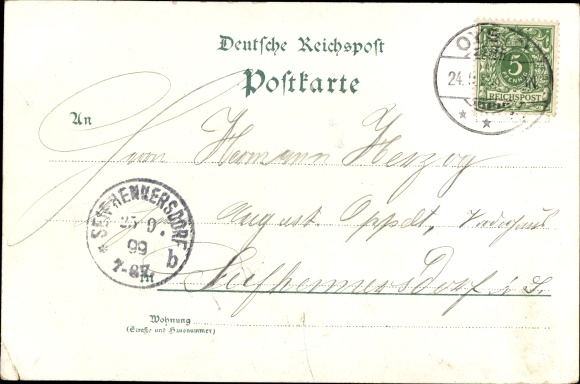 Deutsche Reichspost
Postkarte
OY
24.
5
REICHSPOST
An
Herrn Hermann Herzog
August Oppelt,
SEIFHENNERSDORF
25 9.
99
7-8
b
Seifhennersdorf i. S.
Wohnung
(Straße und Hausnummer)